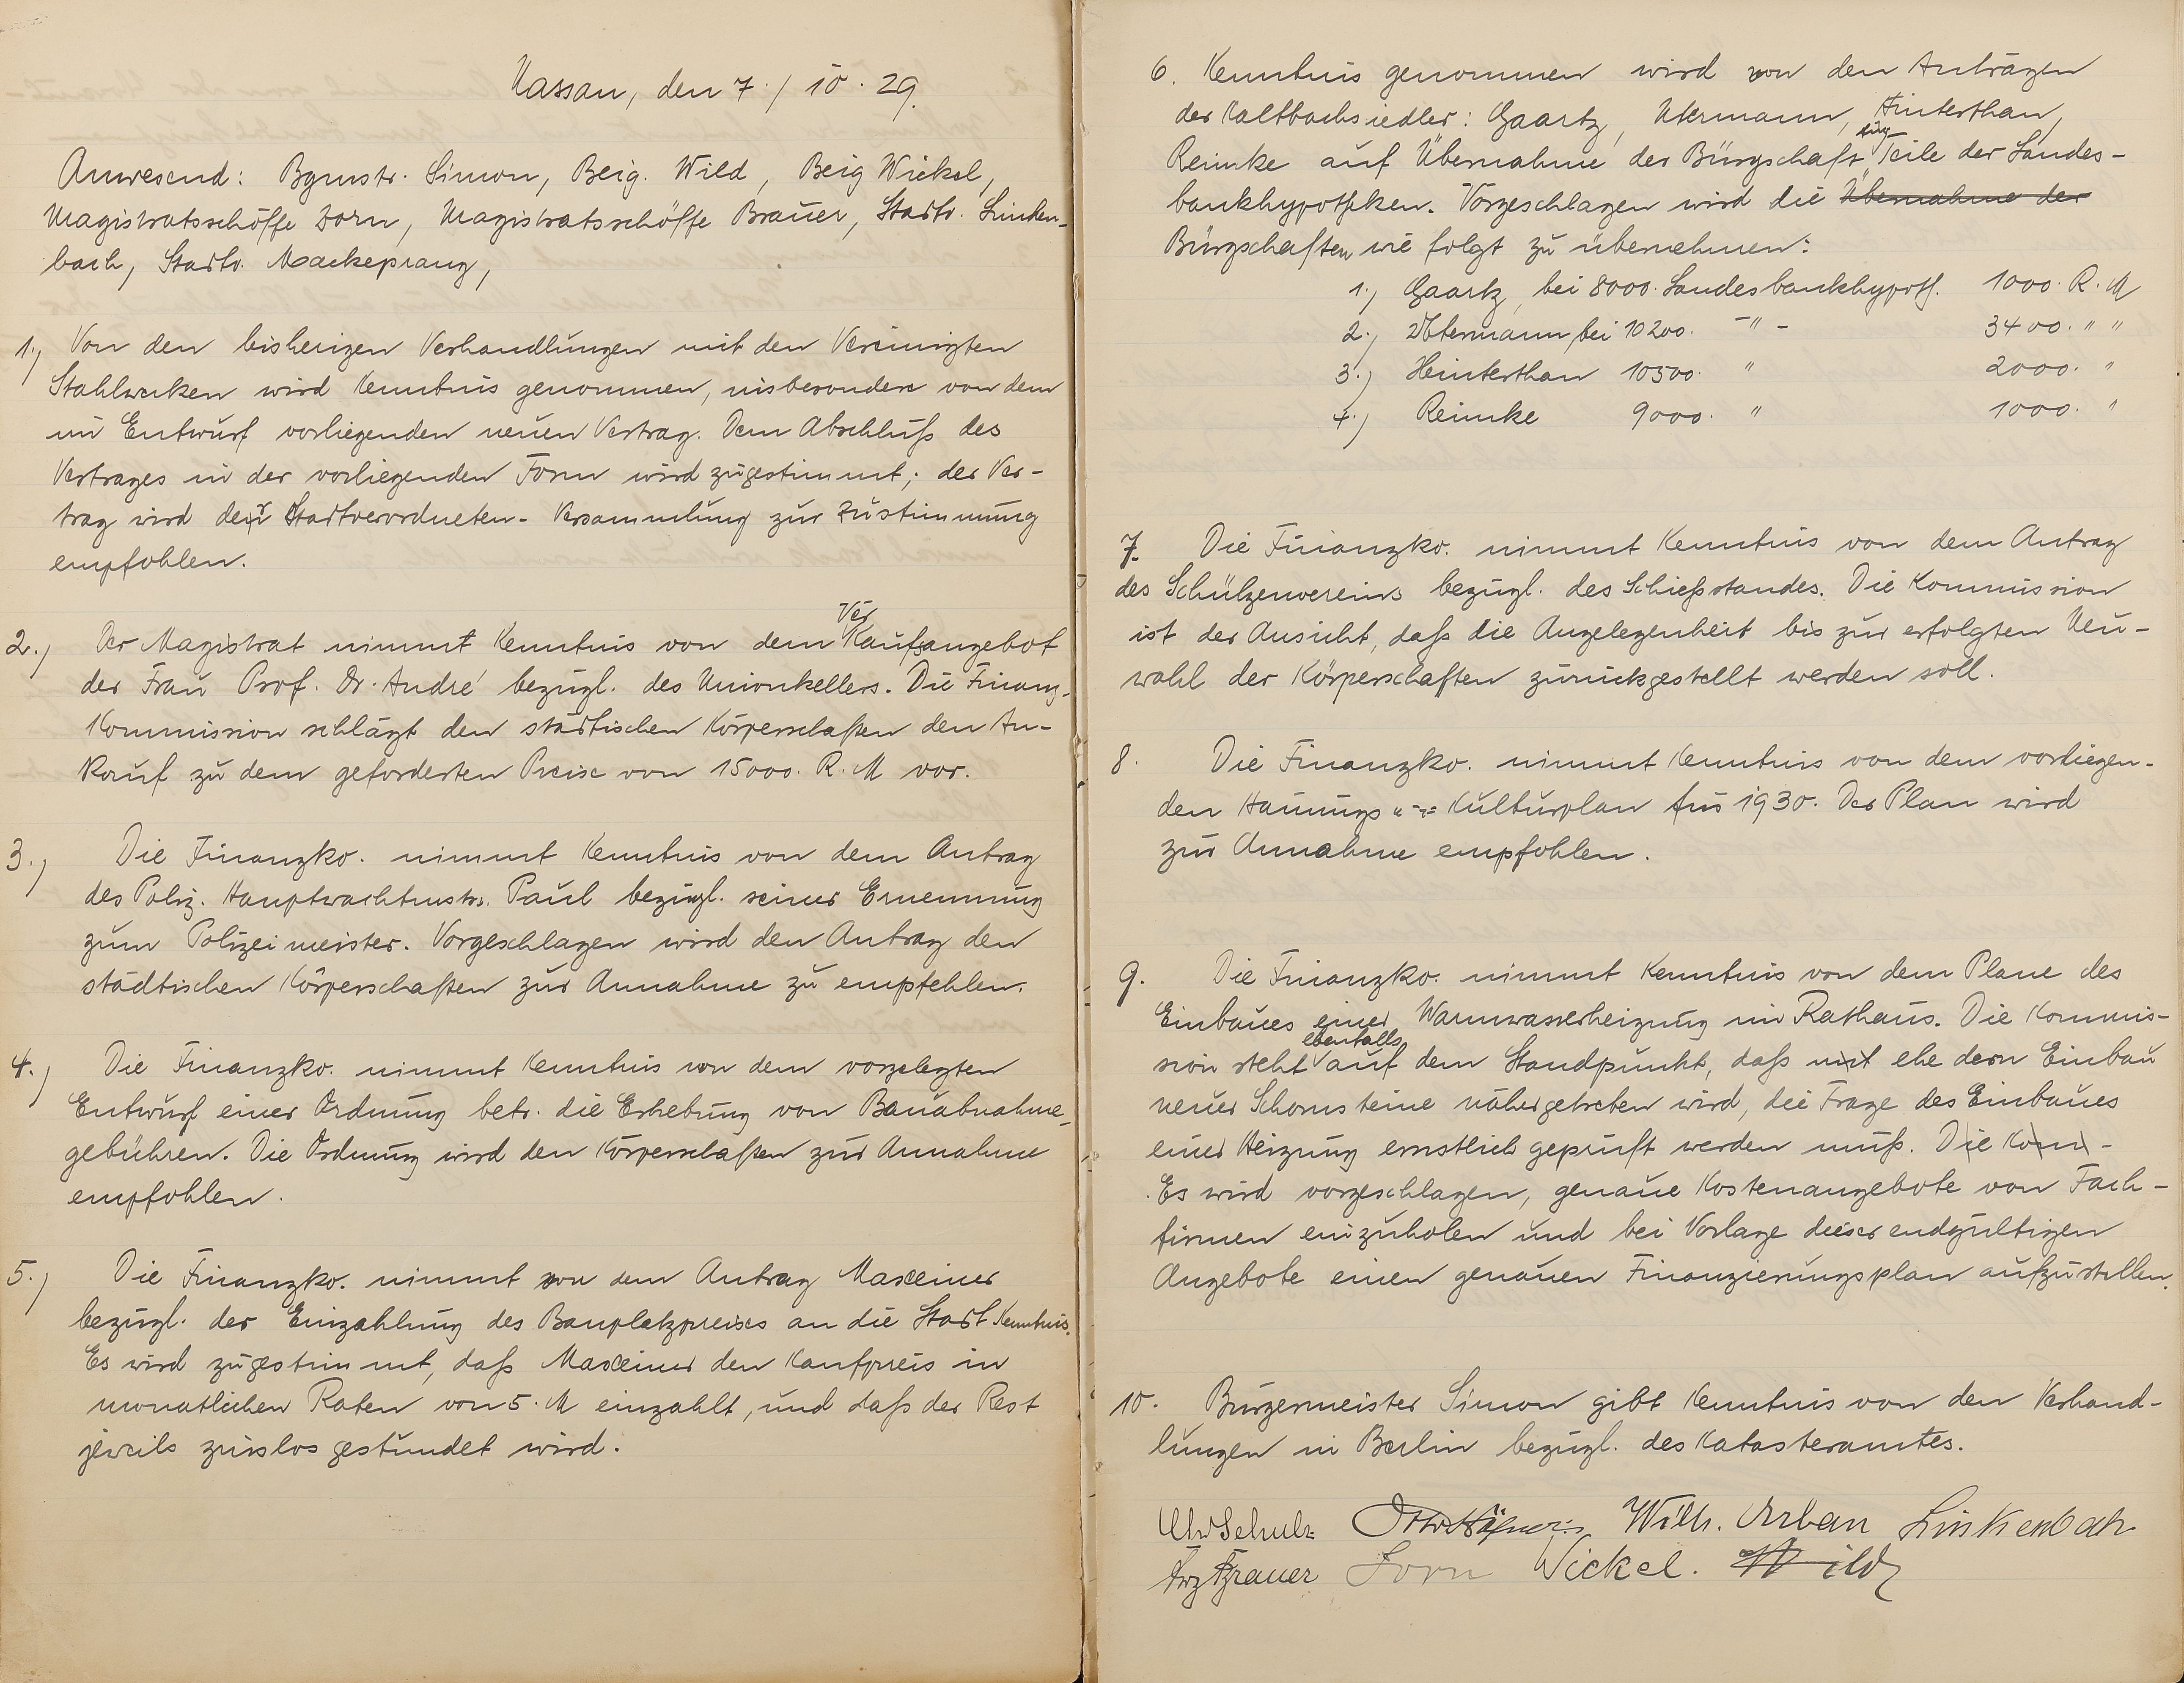 Nassau, den 7./10.29.
Anwesend: Bgmstr. Simon, Beig. Wild, Beig Wickel,
Magistratsschöffe Dorn, Magistratsschöffe Brauer, Stadtv. Linken-
bach, Stadtv. Mackeprang,
1.) Von den bisherigen Verhandlungen mit den Vereinigten
Stahlwerken wird Kenntnis genommen, insbesondere von dem
im Entwurf vorliegenden neuen Vertrag. Dem Abschluß des
Vertrages in der vorliegenden Form wird zugestimmt; der Ver-
trag wird der Stadtverordneten-Versammlung zur Zustimmung
empfohlen.
2.) Der Magistrat nimmt Kenntnis von dem Verkaufsangebot
der Frau Prof. Dr. André bezügl. des Unionkellers. Die Finanz-
Kommission schlägt den städtischen Körperschaften den An-
kauf zu dem geforderten Preise von 15000. R.M vor.
3.) Die Finanzko. nimmt Kenntnis von dem Antrag
des Poliz. Hauptwachtmstrs. Paul bezügl. seiner Ernennung
zum Polizeimeister. Vorgeschlagen wird den Antrag den
städtischen Körperschaften zur Annahme zu empfehlen.
4.) Die Finanzko. nimmt Kenntnis von dem vorgelegten
Entwurf einer Ordnung betr. die Erhebung von Bauabnahme-
gebühren. Die Ordnung wird den Körperschaften zur Annahme
empfohlen.
5.) Die Finanzko. nimmt von dem Antrag Maxeiner
bezügl. der Einzahlung des Bauplatzpreises an die Stadt Kenntnis.
Es wird zugestimmt, daß Maxeiner den Kaufpreis in
monatlichen Raten von 5. M einzahlt, und daß der Rest
jeweils zinslos gestundet wird.
6. Kenntnis genommen wird von den Anträgen
der Kaltbachsiedler: Gaartz, Utermann, Hinterthan,
Reimke auf Übernahme der Bürgschaft für Teile der Landes-
bankhypotheken. Vorgeschlagen wird die Übernahme der
Bürgschaften wie folgt zu übernehmen:
1.) Gaartz, bei 8000. Landesbankhypoth. 1000. R.M
2.) Utermann, bei 10200. -"- 3400. " "
3.) Heinterthan 10500. " 2000. "
4.) Reimke 9000. " 1000. "
7. Die Finanzko. nimmt Kenntnis von dem Antrag
des Schützenvereins bezügl. des Schießstandes. Die Kommission
ist der Ansicht, daß die Angelegenheit bis zur erfolgten Neu-
wahl der Körperschaften zurückgestellt werden soll.
8. Die Finanzko. nimmt Kenntnis von dem vorliegen-
den Hauungs- Kulturplan für 1930. Der Plan wird
zur Annahme empfohlen.
9. Die Finanzko. nimmt Kenntnis von dem Plane des
Einbaues einer Warmwasserheizung im Rathaus. Die Kommis-
sion steht ebenfalls auf dem Standpunkt, daß mit ehe dem Einbau
neuer Schornsteine nähergetreten wird, die Frage des Einbaues
einer Heizung ernstlich geprüft werden muß. Die Kom-
Es wird vorgeschlagen, genaue Kostenangebote von Fach-
firmen einzuholen und bei Vorlage dieser endgültigen
Angebote einen genauen Finanzierungsplan aufzustellen.
10. Bürgermeister Simon gibt Kenntnis von den Verhand-
lungen in Berlin bezügl. des Katasteramtes.
Schulz Wilh. Urban Linkenbach
Brauer Dorn Wickel. Wild